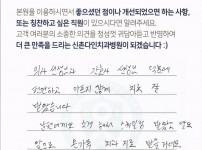 본원을 이용하시면서 좋으셨던 점이나 개선되었으면 하는 사항,
또는 칭찬하고 싶은 직원이 있으시다면 알려주세요.
고객 여러분의 소중한 의견을 정성껏 귀담아듣고 반영하여
더 큰 만족을 드리는 신촌다인치과병원이 되겠습니다 :)
의사 선생님과 간호사 선생님 덕분에
편안하고 아프지 않게 치료 잘
받았습니다
남편에게도 소개
온가족 치과 치료 받을 거예요